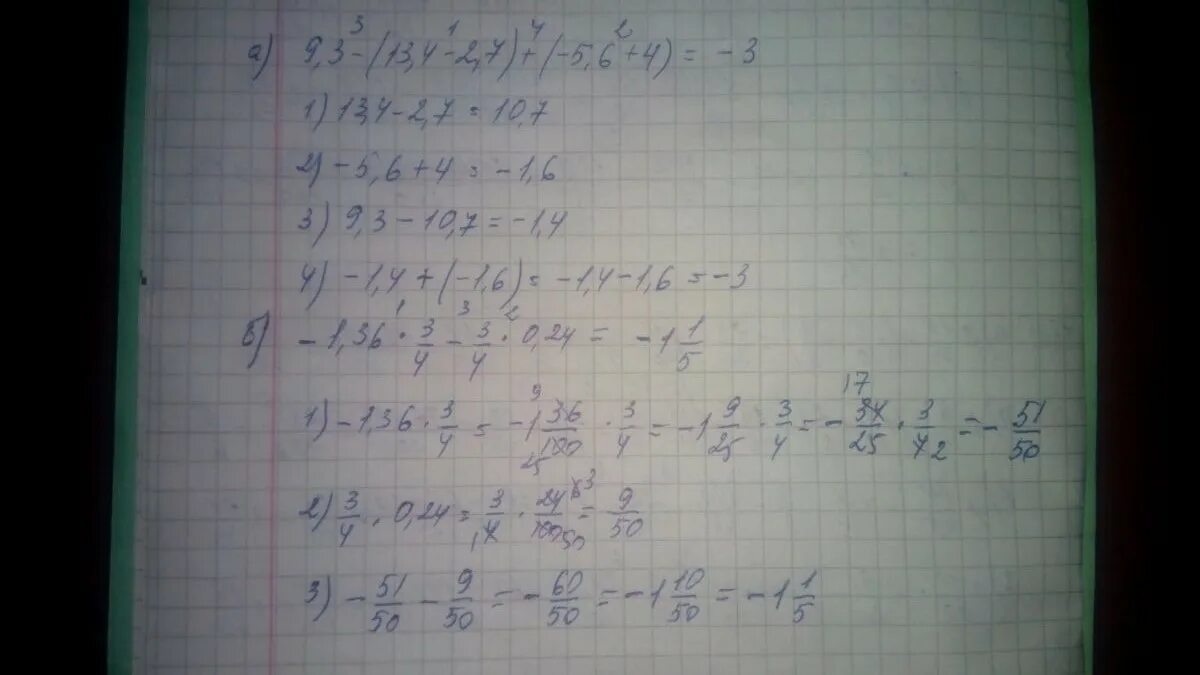 а) 9,3 - (13,4 - 2,7) + (-5,6 + 4) = -3
1) 13,4 - 2,7 = 10,7
2) -5,6 + 4 = -1,6
3) 9,3 - 10,7 = -1,4
4) -1,4 + (-1,6) = -1,4 - 1,6 = -3
б) -1,36 · 3/4 - 3/4 · 0,24 = -1 1/5
1) -1,36 · 3/4 = -1 36/100 · 3/4 = -1 9/25 · 3/4 = - 34/25 · 3/4 = - 51/50
2) 3/4 · 0,24 = 3/4 · 24/100 = 9/50
3) - 51/50 - 9/50 = - 60/50 = -1 10/50 = -1 1/5